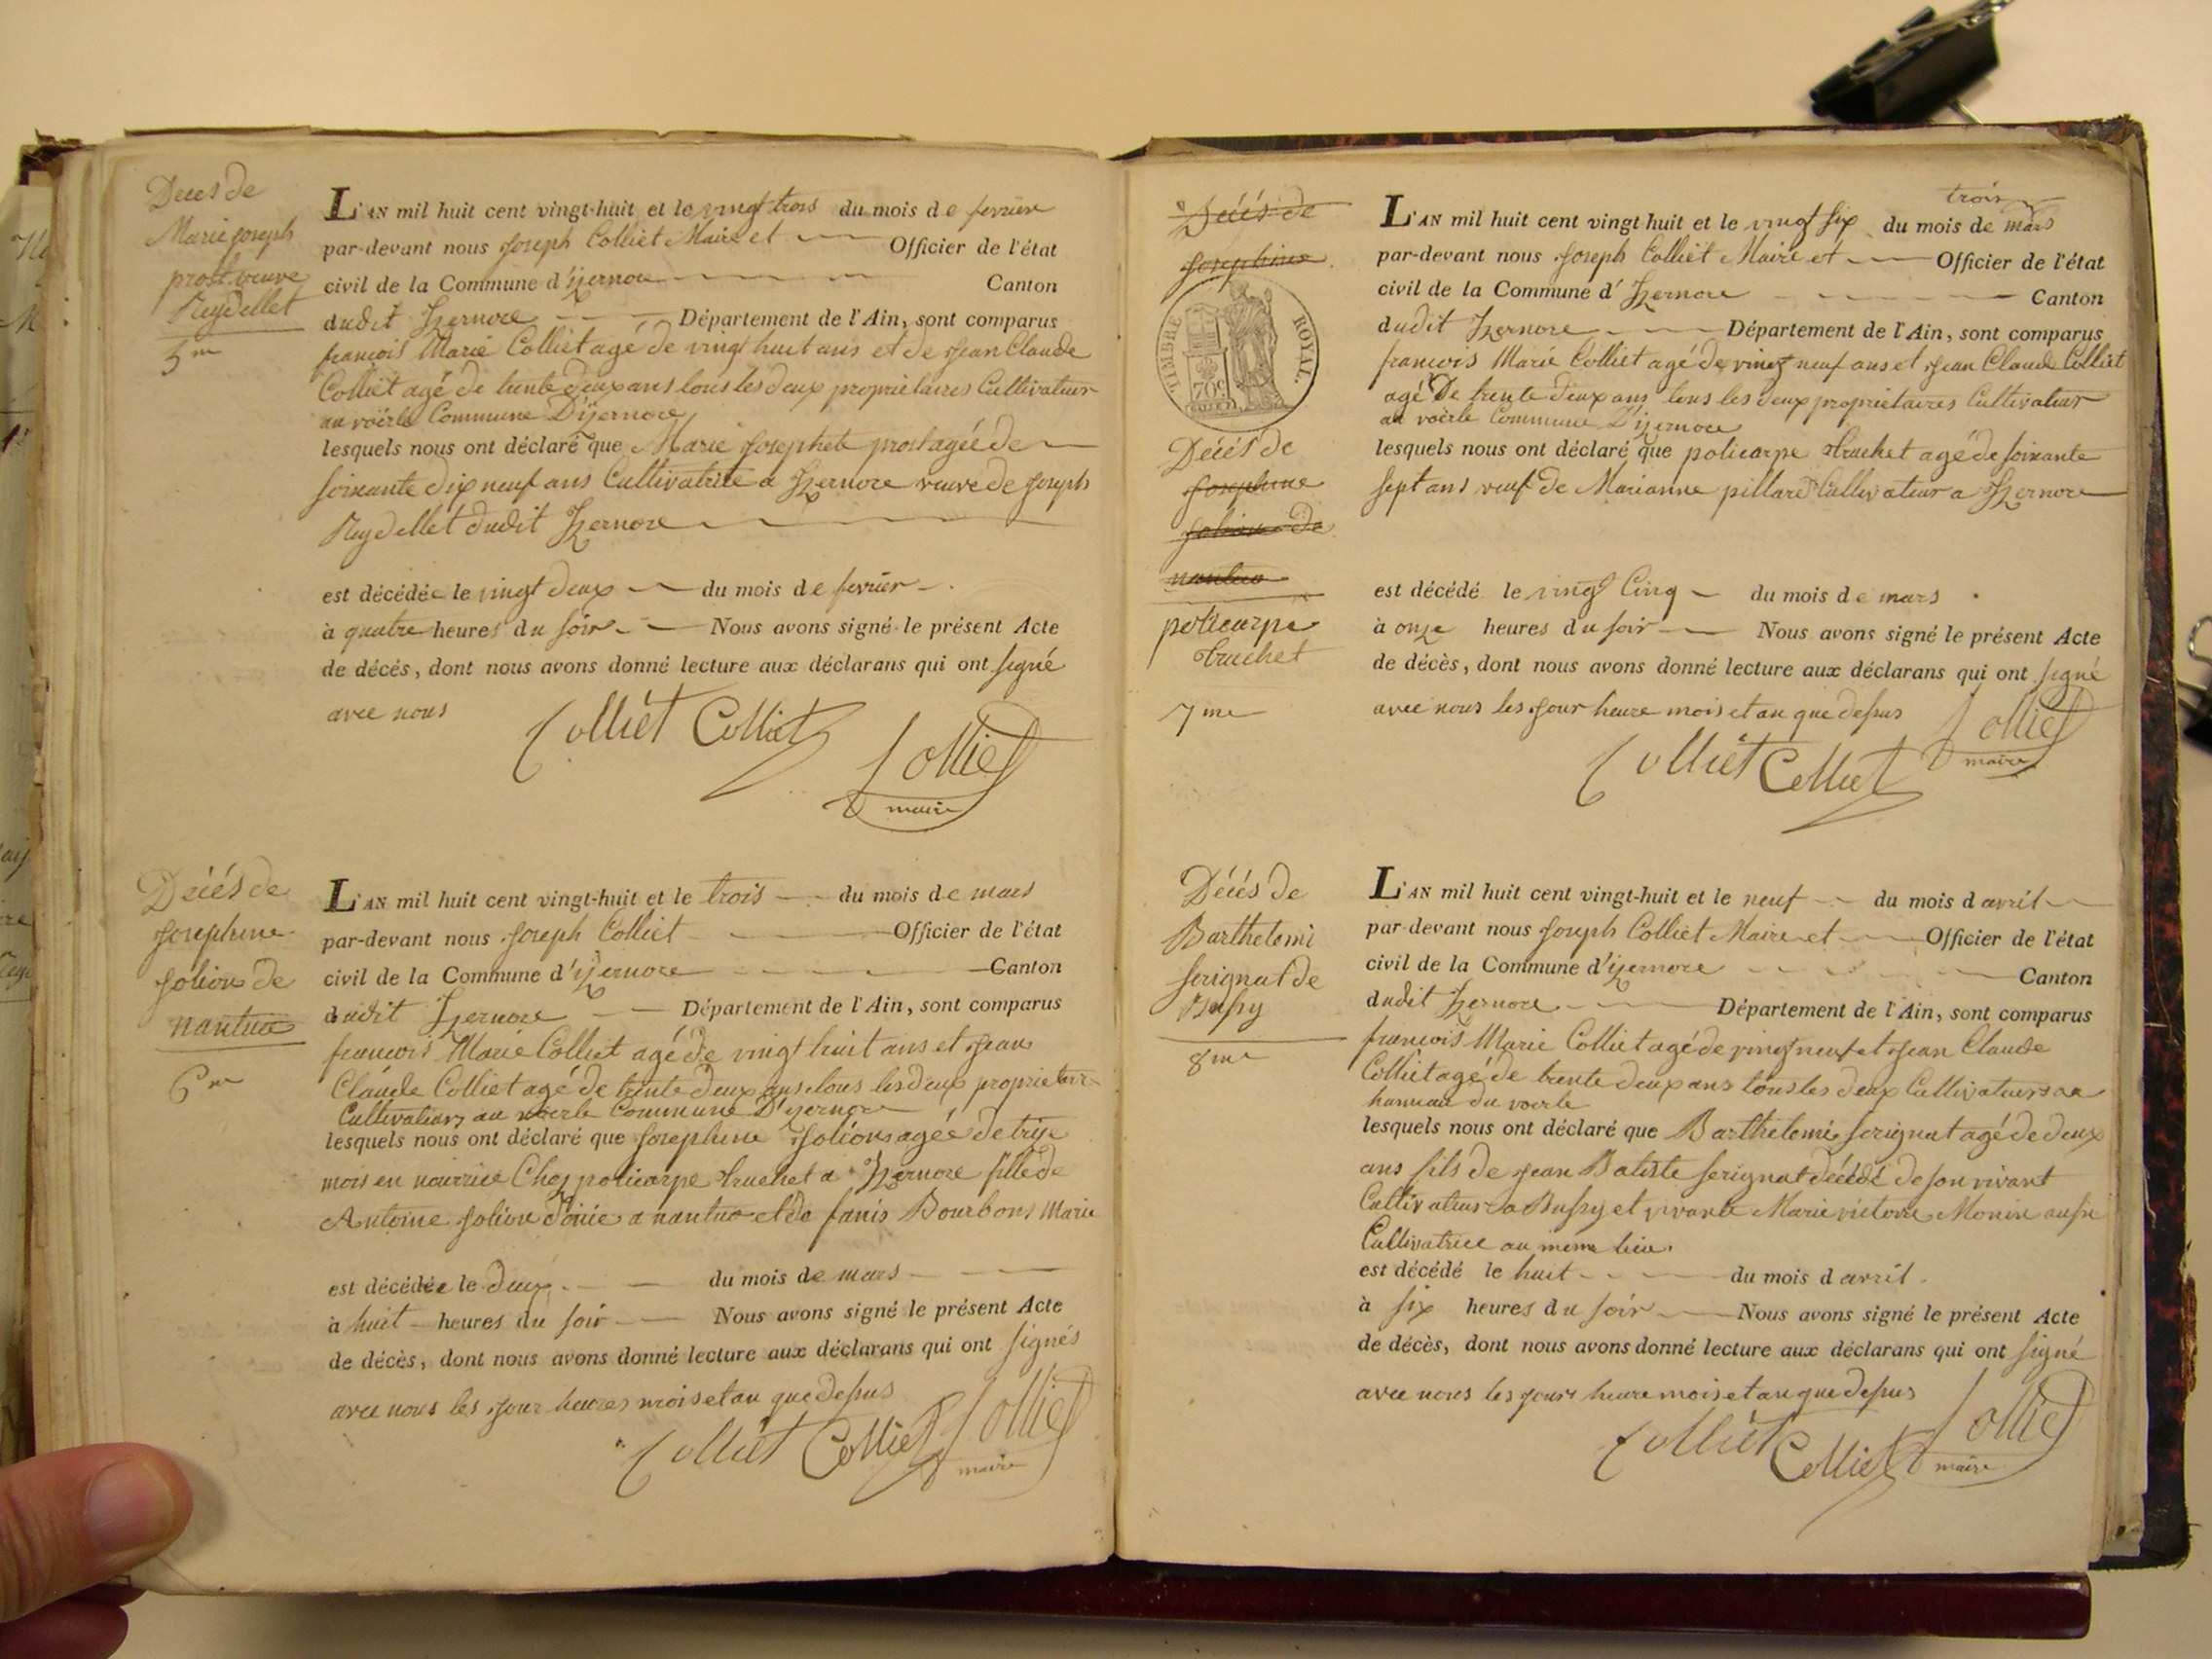 Décès de
Marie joseph
prost veuve
Reydellet
5me
L'AN mil huit cent vingt-huit et le vingt trois du mois de fevrier
par-devant nous joseph Colliet Maire et Officier de l'état
civil de la Commune d'izernore Canton
dudit Izernore Département de l'Ain, sont comparus
francois Marie Colliet agé de vingt huit ans et de jean Claude
Colliet agé de trente deux ans tous les deux proprietaires Cultivateur
au voërle Commune D'izernore
lesquels nous ont déclaré que Marie josephete prost agée de
soixante dix neuf ans Cultivatrice a Izernore veuve de joseph
Reydellet dudit Izernore
est décédée le vingt deux du mois de fevrier
à quatre heures du soir Nous avons signé le présent Acte
de décés, dont nous avons donné lecture aux déclarans qui ont signé
avec nous
Colliet Colliet Colliet
maire
Décés de
josephine
jolion de
nantua
6me
L'AN mil huit cent vingt-huit et le trois du mois de mars
par-devant nous joseph Colliet Officier de l'état
civil de la Commune d'izernore Canton
dudit Izernore Département de l'Ain, sont comparus
francois Marie Colliet agé de vingt huit ans et jean
Claude Colliet agé de trente deux ans tous les deux proprietair
Cultivateurs au voerle Commune D'izernore
lesquels nous ont déclaré que josephine jolion agée de trize
mois en nourrice Chez policarpe truchet a Izernore fille de
Antoine jolion a nantua et de fanis Bourbons Marie
est décédée le deux du mois de mars
à huit heures du soir Nous avons signé le présent Acte
de décès, dont nous avons donné lecture aux déclarans qui ont signés
avec nous les jour heures mois et an que dessus
Colliet Colliet Colliet
maire
Décés de
josephine
TIMBRE ROYAL.
70c
Décés de
josephine
jolion de
nantua
policarpe
truchet
7me
trois
L'AN mil huit cent vingt huit et le vingt six du mois de mars
par-devant nous joseph Colliet Maire et Officier de l'état
civil de la Commune d' Izernore Canton
dudit Izernore Département de l'Ain, sont comparus
francois Marie Colliet agé de vingt neuf ans et jean Claude Colliet
agé De trente deux ans tous les deux proprietaires Cultivateur
au voërle Commune D'izernore
lesquels nous ont déclaré que policarpe truchet agé de soixante
sept ans veuf de Marianne pillard Cultivateur a Izernore
est décédé le vingt Cinq du mois de mars
à onze heures du soir Nous avons signé le présent Acte
de décès, dont nous avons donné lecture aux déclarans qui ont signé
avec nous les jour heure mois et an que dessus
Colliet Colliet Colliet
maire
Décés de
Barthelemi
serignat de
Bussy
8me
L'AN mil huit cent vingt-huit et le neuf du mois d avril
par-devant nous joseph Colliet Maire et Officier de l'état
civil de la Commune d'izernore Canton
dudit Izernore Département de l'Ain, sont comparus
francois Marie Colliet agé de vingt neuf et jean Claude
Colliet agé de trente deux ans tous les deux Cultivateurs au
hameau du voerle
lesquels nous ont déclaré que Barthelemi serignat agé de deux
ans fils de jean Batiste serignat décédé de son vivant
Cultivateur a Bussy et vivante Marie victoire Monin aussi
Cultivatrice au meme lieu.
est décédé le huit du mois d avril
à six heures du soir Nous avons signé le présent Acte
de décès, dont nous avons donné lecture aux déclarans qui ont signé
avec nous les jours heure mois et an que dessus
Colliet Colliet Colliet
maire